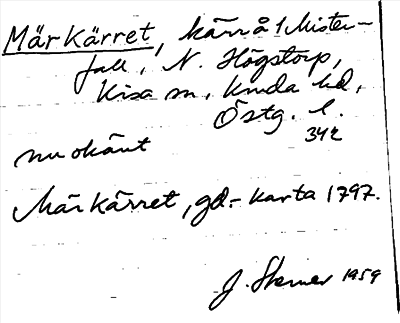 Märkärret, kärr å 1 Mister-
fall, N. Högstorp,
Kisa sn, Kinda hd,
Östg. l.
342
nu okänt
Märkärret, gd.- karta 1797.
J. Sterner 1959